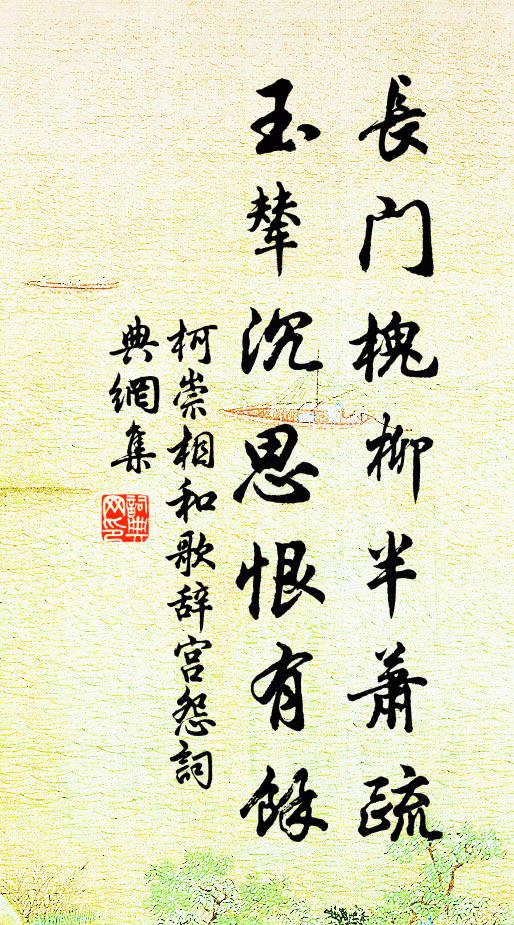 長門槐柳半蕭疏
玉輦沉思恨有餘
柯崇相和歌辞宫怨詞
典網集
詞典網印